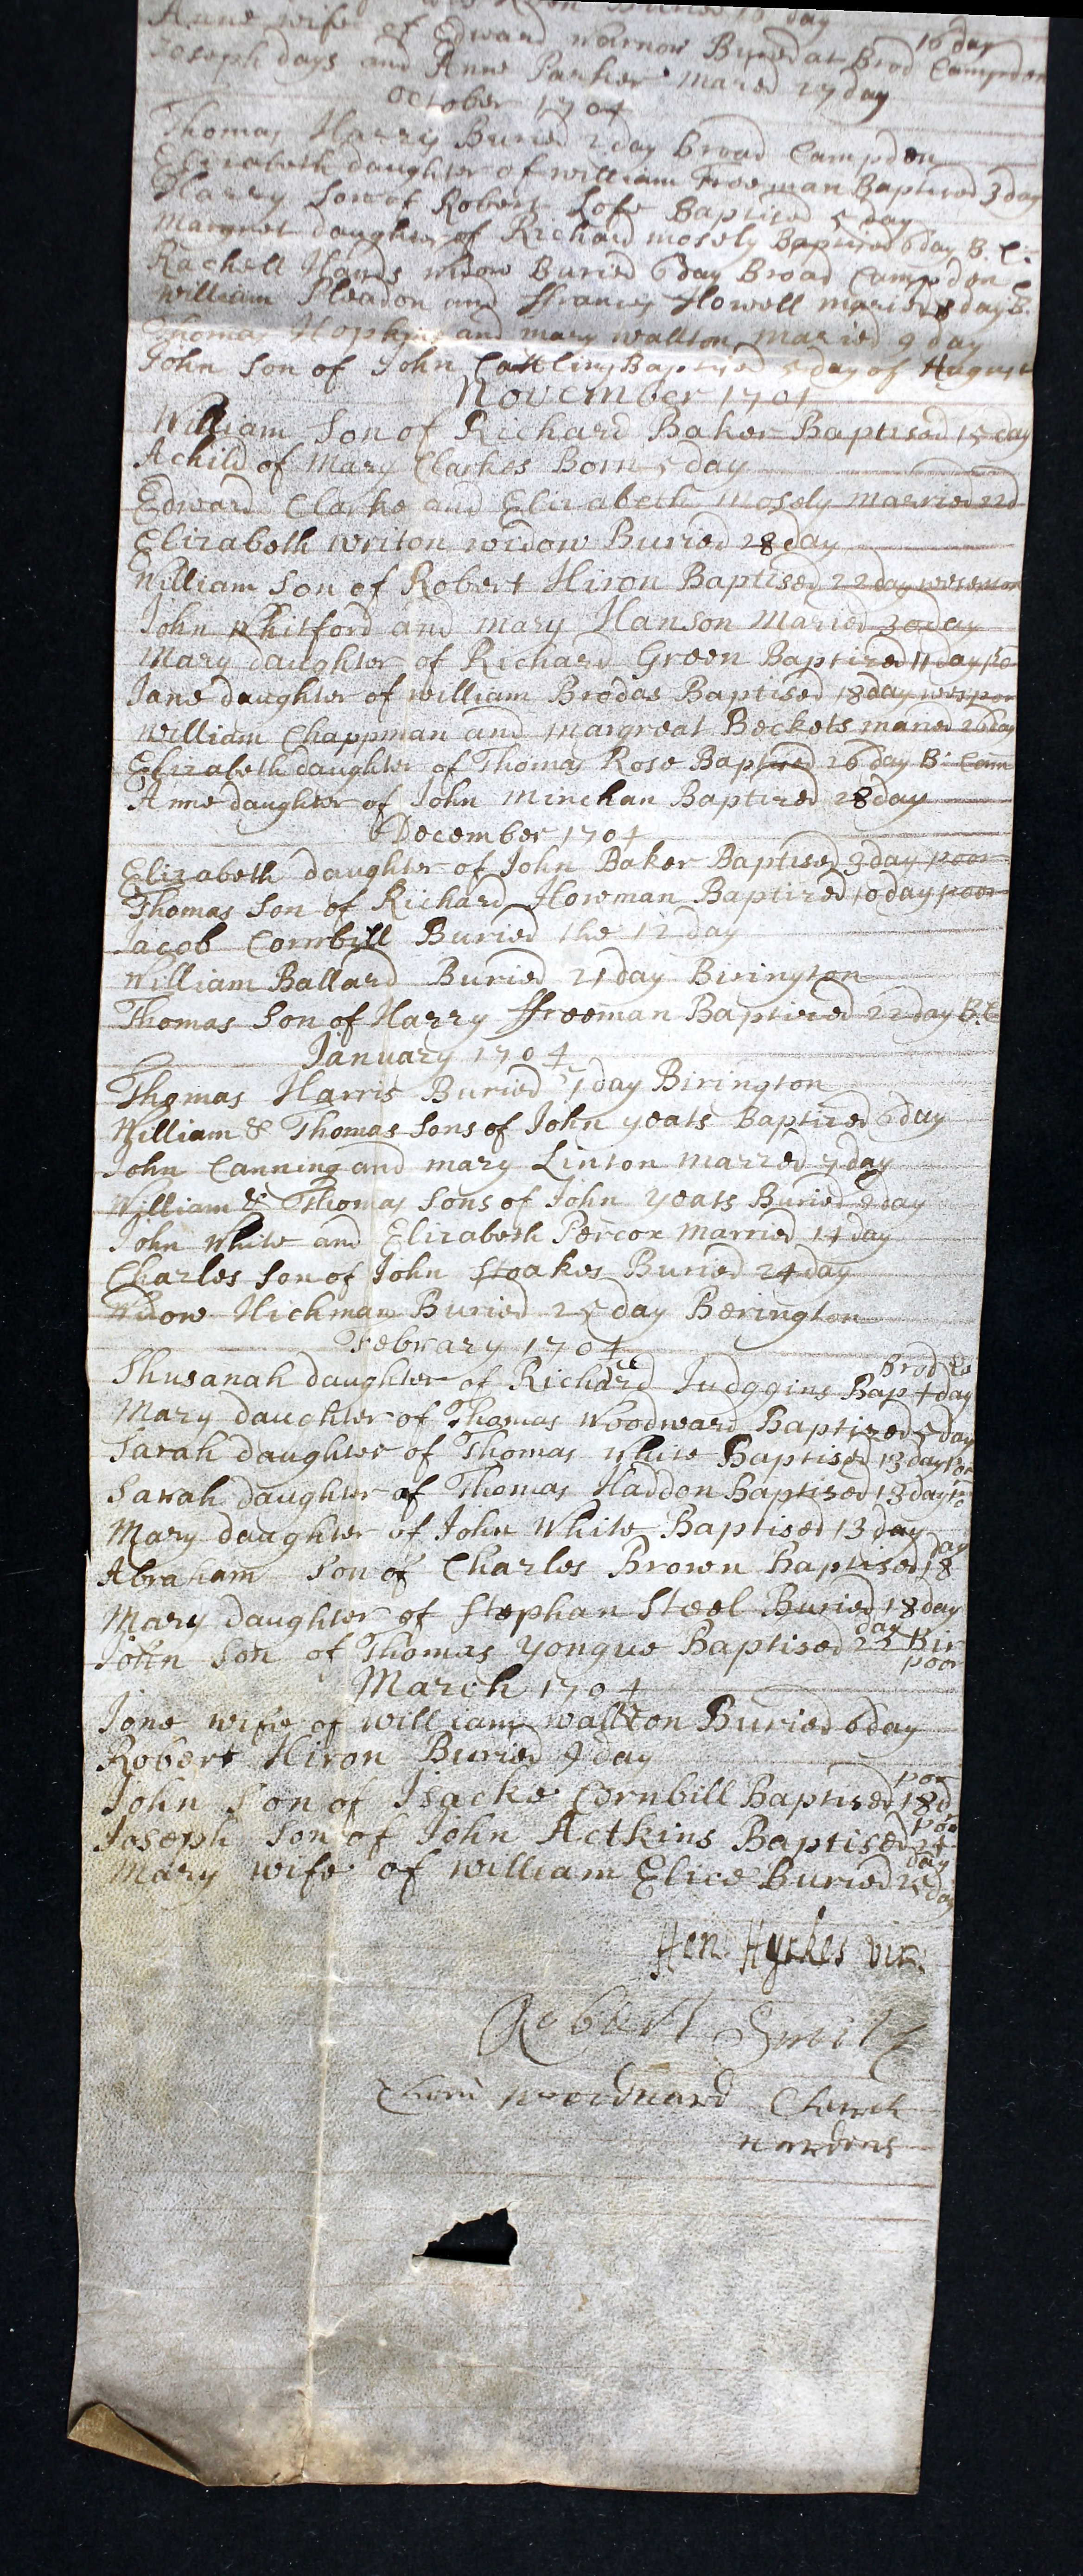 Anne wife of Edward Warnow Buried at Brod Campden 16 day
Joseph days and Anne Parker Maried 27 day
October 1704
Thomas Harry Buried 2 day broad Campden
Elizabeth daughter of william Freeman Baptized 3 day
Harry Son of Robert Baptised 5 day
Margret daughter of Richard mosely Baptized 6 day B. C.
Rachell Hands widow Buried 6 day Broad Campden
William Pleadon and ffrancis Howell maried 8 day B. C
Thomas Hopkins and mary wallton Maried 9 day
John Son of John Catling Baptised 5 day of August
November 1704
William Son of Richard Baker Baptised 15 day
A child of Mary Clarkes Born 5 day
Edward Clarke and Elizabeth Mosely Married 22d
Elizabeth writon widow Buried 28 day
William Son of Robert Hiron Baptised 22 day
John Whitford and mary Hanson Maried 30 day
Mary daughter of Richard Green Baptized 11 day po
Jane daughter of william Brodas Baptised 18 day
William Chappman and margreat Beckets maried day
Elizabeth daughter of Thomas Rose Baptised 26 day B: Cam
Anne daughter of John Minchan Baptized 28 day
December 1704
Elizabeth daughter of John Baker Baptised 3 day poor
Thomas Son of Richard Howman Baptized 10 day poor
Jacob Cornbill Buried the 12 day
William Ballard Buried 21 day Birington
Thomas Son of Harry ffreeman Baptized 22 day B.C
January 1704
Thomas Harris Buried day Birington
William & Thomas Sons of John yeats Baptized 6 day
John Canning and mary Linton marred 7 day
William & Thomas Sons of John yeats Buried 9 day
John White and Elizabeth Percox Married 14 day
Charles Son of John Stoakes Buried 24 day
Widow Hickman Buried 25 day Berington
Febrary 1704
Shusanah daughter of Richard Judggins Bap 4 day brod
Mary daughter of Thomas Woodward Baptized 5 day
Sarah daughter of Thomas White Baptised 13 day por
Sarah daughter of Thomas Haddon Baptized 13 day po
Mary daughter of John White Baptised 13 day
Abraham Son of Charles Brown Baptised 18 day
Mary daughter of Stephan Steel Buried 18 day
John Son of Thomas yongue Baptised 22 day Bir poor
March 1704
Jane wife of william wallton Buried 6 day
Robert Hiron Buried 9 day
John Son of Isacke Cornbill Baptized 18 d por
Joseph Son of John Actkins Baptised 24 day por
Mary wife of william Elice Buried 25 day
Hen: Hyckes vic:
Robert Smith
Thom Woodward Church
wardens